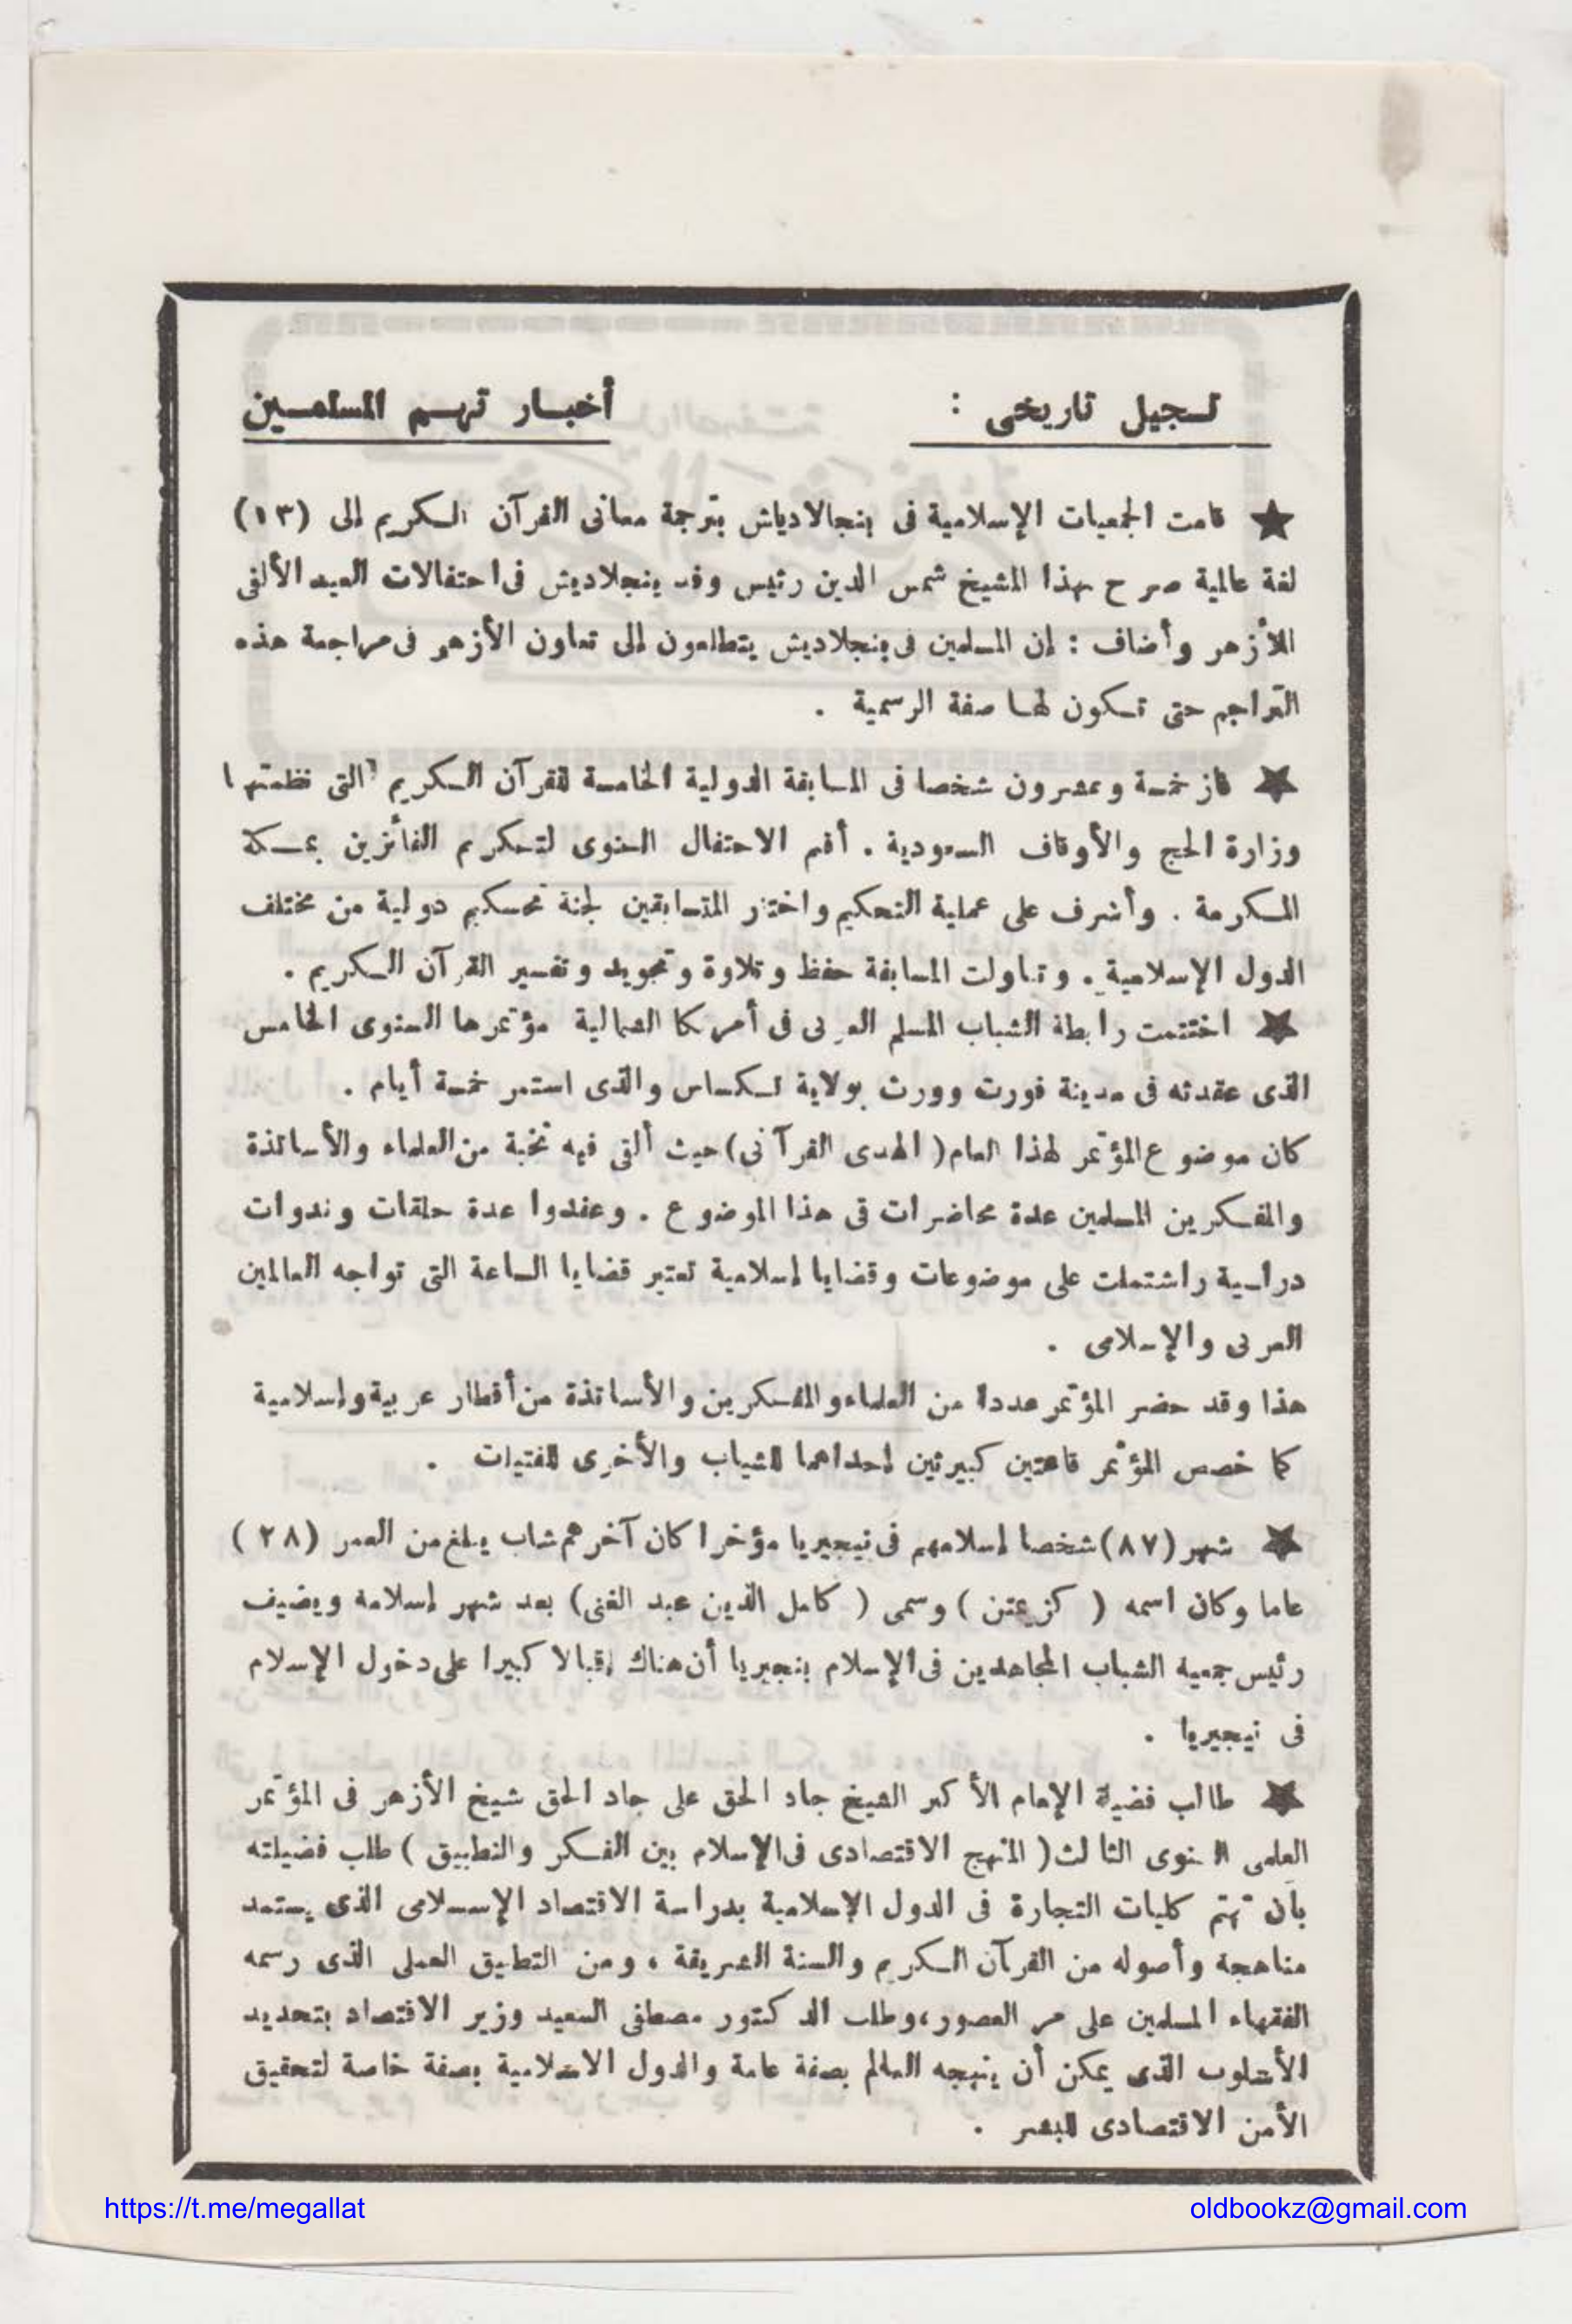 تسجيل تاريخى : أخبار تهم المسلمين
★ قامت الجمعيات الإسلامية فى بنجالادياش بترجمة معانى القرآن الكريم إلى (١٣)
لغة عالمية صرح بهذا الشيخ شمس الدين رئيس وفد بنجلاديش فى احتفالات العيد الألفى
للأزهر وأضاف : إن المسلمين فى بنجلاديش يتطلعون إلى تعاون الأزهر فى مراجعة هذه
التراجم حتى تكون لها صفة الرسمية .
★ فاز خمسة وعشرون شخصا فى المسابقة الدولية الخامسة للقرآن الكريم التى نظمتها
وزارة الحج والأوقاف السعودية . أقيم الاحتفال السنوى لتكريم الفائزين بمكة
المكرمة . وأشرف على عملية التحكيم واختار المتسابقين لجنة تحكيم دولية من مختلف
الدول الإسلامية . وتناولت المسابقة حفظ وتلاوة وتجويد وتفسير القرآن الكريم .
★ اختتمت رابطة الشباب المسلم العربى فى أمريكا الشمالية مؤتمرها السنوى الخامس
الذى عقدته فى مدينة فورت وورث بولاية تكساس والذى استمر خمسة أيام .
كان موضوع المؤتمر لهذا العام ( الهدى القرآنى ) حيث ألقى فيه نخبة من العلماء والأساتذة
والمفكرين المسلمين عدة محاضرات فى هذا الموضوع . وعقدوا عدة حلقات وندوات
دراسية واشتملت على موضوعات وقضايا إسلامية تعتبر قضايا الساعة التى تواجه العالمين
العربى والإسلامى .
هذا وقد حضر المؤتمر عددا من العلماء والمفكرين والأساتذة من أقطار عربية وإسلامية
كما خصص المؤتمر قاعتين كبيرتين إحداهما للشباب والأخرى للفتيات .
★ شهر (٨٧) شخصا إسلامهم فى نيجيريا مؤخرا كان آخرهم شاب يبلغ من العمر (٢٨)
عاما وكان اسمه ( كزعتن ) وسمى ( كامل الدين عبد الغنى ) بعد شهر إسلامة ويضيف
رئيس جمعية الشباب المجاهدين فى الإسلام بنجيريا أن هناك إقبالا كبيرا على دخول الإسلام
فى نيجيريا .
★ طالب فضية الإمام الأكبر الشيخ جاد الحق على جاد الحق شيخ الأزهر فى المؤتمر
العلمى السنوى الثالث ( المنهج الاقتصادى فى الإسلام بين الفكر والتطبيق ) طلب فضيلته
بأن تهتم كليات التجارة فى الدول الإسلامية بدراسة الاقتصاد الإسلامى الذى يستمد
مناهجة وأصوله من القرآن الكريم والسنة الشريفة ، ومن التطبيق العملى الذى رسمه
الفقهاء المسلمين على مر العصور ، وطلب الدكتور مصطفى السعيد وزير الاقتصاد بتحديد
الأسلوب الذى يمكن أن ينهجه العالم بصفة عامة والدول الاسلامية بصفة خاصة لتحقيق
الأمن الاقتصادى للبشر .
https://t.me/megallat oldbookz@gmail.com